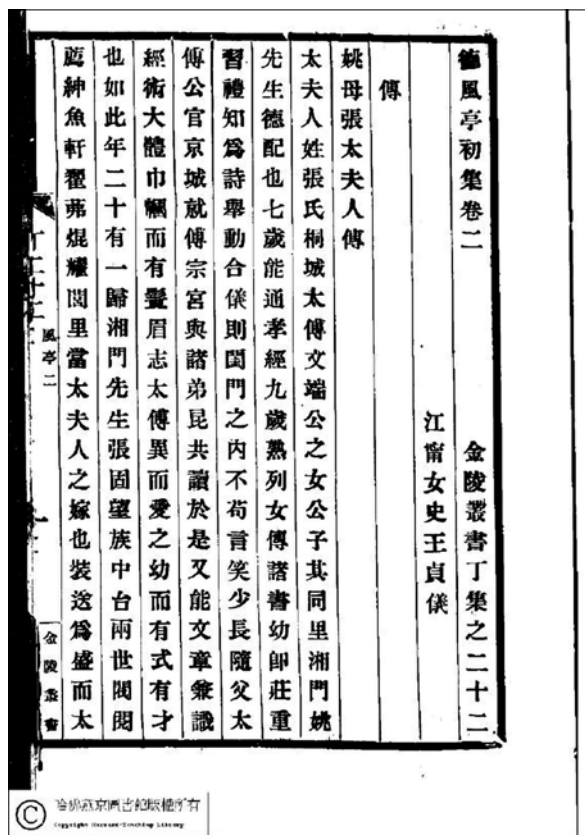 德風亭初集卷二 金陵叢書丁集之二十二
江甯女史王貞儀
傳
姚母張太夫人傳
太夫人姓張氏桐城太傅文端公之女公子其同里湘門姚
先生德配也七歲能通孝經九歲熟列女傳諸書幼卽莊重
習禮知爲詩舉動合儀則閨門之內不苟言笑少長隨父太
傅公官京城就傅宗宮與諸弟昆共讀於是又能文章兼識
經術大體巾幗而有鬚眉志太傅異而愛之幼而有式有才
也如此年二十有一歸湘門先生張固望族中台兩世閥閱
薦紳魚軒翟茀焜耀閭里當太夫人之嫁也裝送爲盛而太
風亭二
金陵叢書
© 哈佛燕京圖書館版權所有
Copyright Harvard-Yenching Library